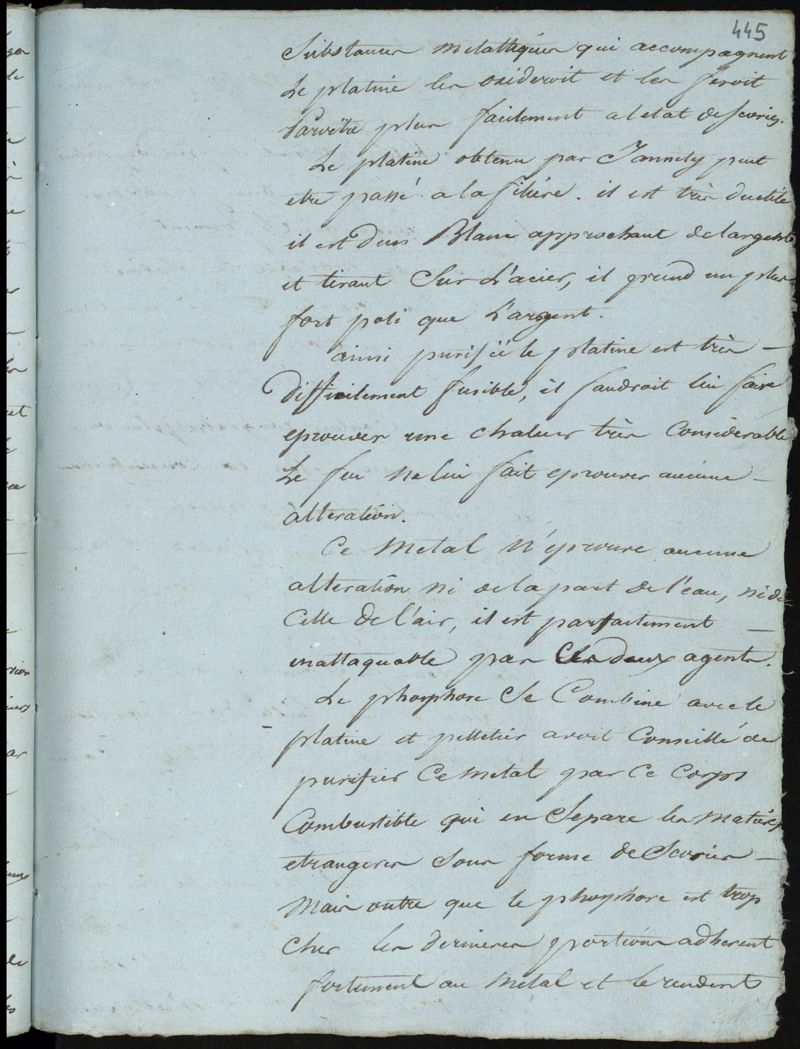 445
Substances metalliques qui accompagnent
Le platine les oxideroit et les feroit
Paroitre plus facilement a letat de scories.
Le platine obtenu par Jannety peut
etre passé a la filiére. il est très ductile
il est dun Blanc approchant de largent
et tirant Sur L'acier, il prend un plus
fort poli que L'argent.
ainsi purifié le platine est très –
difficilement fusible, il faudroit lui faire
eprouver une chaleur très Considerable
Le feu ne lui fait eprouver aucune –
alteration.
Ce Metal N'eprouve aucune
alteration ni de la part de l'eau, ni de
Celle de l'air, il est parfaitement –
inattaquable par Ces deux agents.
Le phosphore Se Combine avec le
platine et pelletier avoit Conseillé de
purifier Ce Metal par Ce Corps
Combustible qui en Separe les Matieres
etrangeres Sous forme de Scories –
Mais outre que le phosphore est trop
cher les dernieres portions adherent
fortement au Metal et le rendent